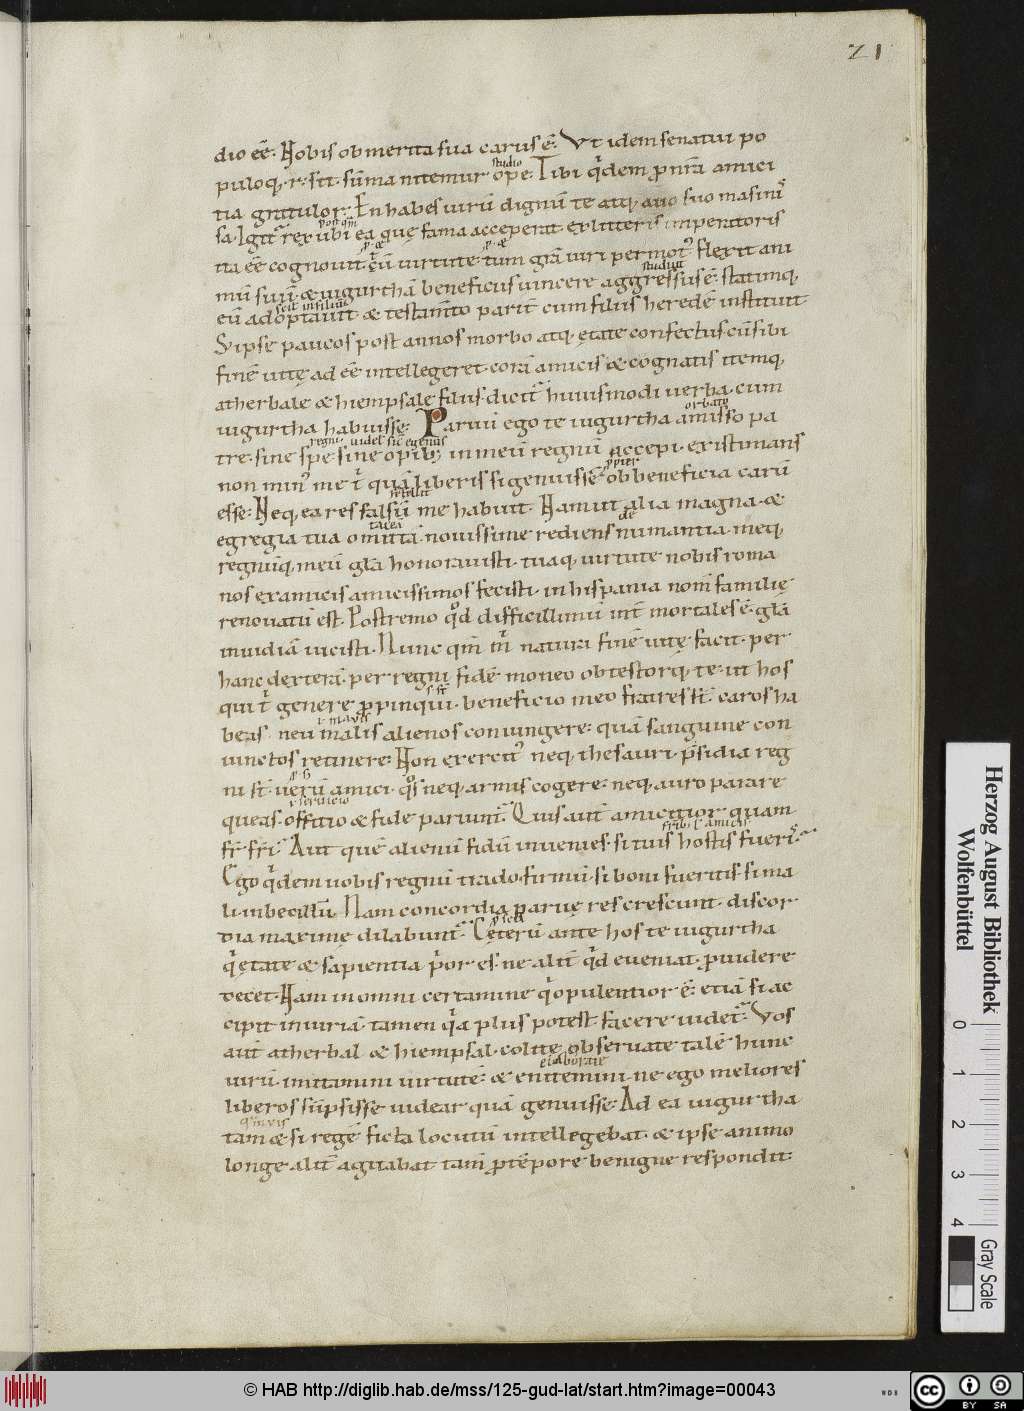 21
dio eē. Nobis ob merita sua carus ē. Vt idem senatui po
studio
puloq; r. sit. sūma nitemur ope. Tibi q̇dem ꝓ nr̄a amici
tia gratulor. En habes uirū dignū te atq; auo suo masini
sa. Igit᷑ rex ubi ea quę fama acceperat ex litteris imperatoris
ita eē cognouit. cū uirtute. tum grā uiri permot᷑. flexit ani
studuit
mū suū. & iugurthā beneficiis uincere aggressus ē. statimq;
eū adoptauit. & testam̄to pariť cum filiis heredē instituit
S; ipse paucos post annos morbo atq; ętate confectus cū sibi
finē uitę adeē intellegeret. corā amicis & cognatis itemq;
atherbale & hiempsale filiis. dicit᷑ huiusmodi uerba cum
orbato
iugurtha habuisse. Paruū ego te iugurtha amisso pa
tre. sine spe sine opib; in meū regnū accepi. existimans
ꝓpter
non min᷑ me t̄ quā liberis si genuissē ob beneficia carū
fefellit
esse. Neq; ea res falsū me habuit. Nam ut alia magna. &
taceā de
egregia tua omittā. nouissime rediens numantia. meq;
regnūq; meū glā honorauisti. tuaq; uirtute nobis roma
nos ex amicis amicissimos fecisti. in hispania nom̄ familię
renouatū est. Postremo qd̄ difficillimū int̄ mortales ē. glā
inuidiā uicisti. Nunc qm̄ m̄ natura finē uitę facit. per
hanc dexterā. per regni fidē moneo obtestorq; te. ut hos
qui t̄ genere ꝓpinqui. beneficio meo fratres st̄. caros ha
l mauis
beas. neu malis alienos coniungere. quā sanguine con
iunctos retinere. Non exercit᷑ neq; thesauri. p̄sidia reg
ni st̄. uerū amici. qo̅s neq; armis cogere. neq; auro parare
l seruicio
queas. offitio & fide pariunt᷑. Quis aut̄ amicitior quam
fr̄ fr̄i? Aut quē alienū fidū inuenies. si tuis hostis fueris?
Ego q̇dem uobis regnū trado. firmū. si boni fueritis. si ma
li. inbecillū. Nam concordia paruę res crescunt. discor
dia maximę dilabunt᷑. Cęterū ante hos te iugurtha
q̇ ętate & sapientia p̄or es. ne aliť qd̄ eueniat. ꝓuidere
decet. Nam in omni certamine q̇ opulentior ē. etiā si ac
cipit iniuriā. tamen q̇a plus potest. facere uidet᷑. Vos
aut̄ atherbal & hiempsal. colite obseruate talē hunc
elaborate
uirū. imitamini uirtutē. & enitemini. ne ego meliores
liberos sūpsisse uidear quā genuisse. Ad ea iugurtha
quāuis
tam & si regē ficta locutū intellegebat. & ipse animo
longe aliť agitabat tam̄ ꝓ tēpore benigne respondit.
Herzog August Bibliothek
Wolfenbüttel
0 1 2 3 4
Gray Scale
© HAB http://diglib.hab.de/mss/125-gud-lat/start.htm?image=00043
WDB
cc BY SA